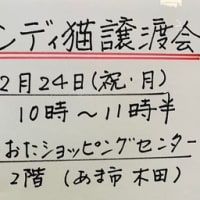 ンディ猫譲渡会
2月24日(祝・月)
10時〜11時半
おたショッピングセンター
2階 (あま市 木田)